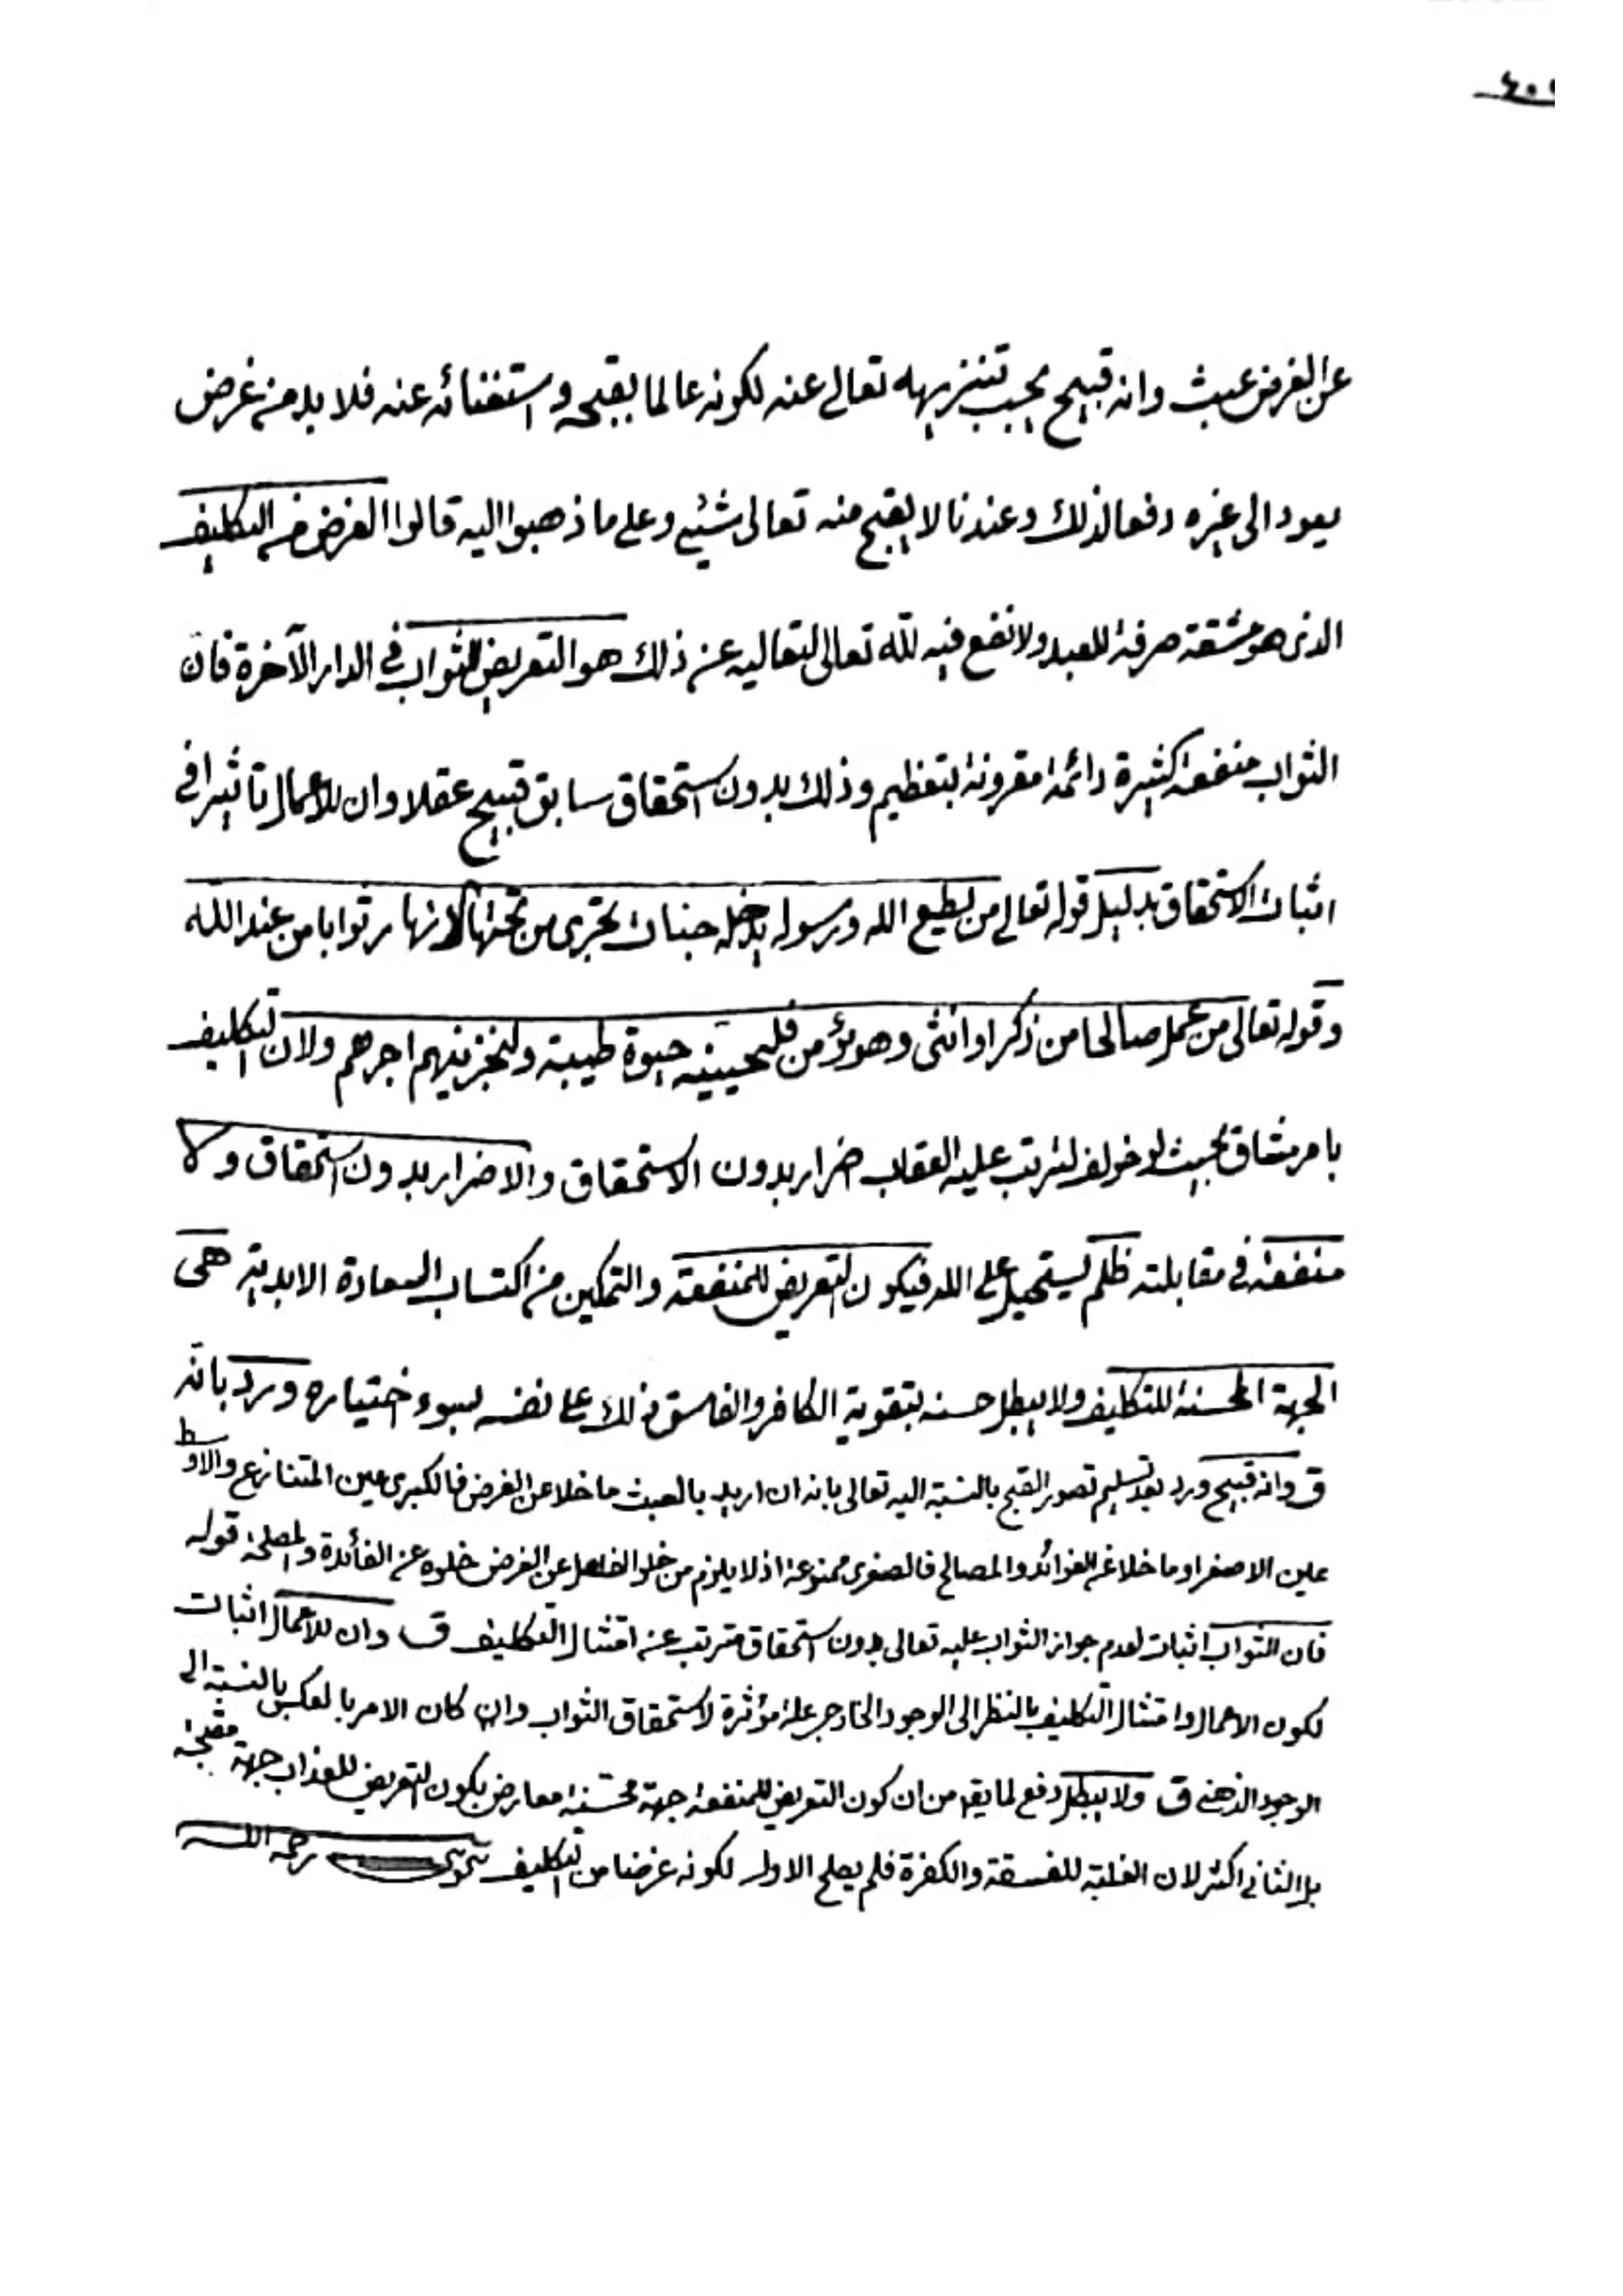 عن الغرض عبث وانه قبيح يجب تنزيهه تعالى عنه لكونه عالما بقبحه واستغنائه عنه فلا بد من غرض
يعود الى غيره دفعا لذلك وعندنا لا يقبح منه تعالى شئي وعلى ما ذهبوا اليه قالوا الغرض من التكليف
الذى هو مشقة صرفة للعبد ولا نفع فيه لله تعالى لتعاليه عن ذلك هو التعريض للثواب فى الدار الآخرة فان
الثواب منفعة كثيرة دائمة مقرونة بتعظيم وذلك بدون استحقاق سابق قبيح عقلا وان للاعمال تاثيرا فى
اثبات الاستحقاق بدليل قوله تعالى من يطيع الله ورسوله يدخله جنات تجرى من تحتها الانهار ثوابا من عند الله
وقوله تعالى من عمل صالحا من ذكر او انثى وهو مؤمن فلنحيينه حيوة طيبة ولنجزينهم اجرهم ولان التكليف
بامر شاق بحيث لو خولف لترتب عليه العقاب اضرار بدون الاستحقاق والاضرار بدون استحقاق ولا
منفعة فى مقابلته ظلم يستحيل على الله فيكون التعريض للمنفعة والتمكين من اكتساب السعادة الابدية هى
الجهة المحسنة للتكليف ولا يبطل حسنه بتقوية الكافر والفاسق ذلك على نفسه لسوء اختياره ورد بانه
ق وانه قبيح ورد بعد تسليم تصور القبح بالنسبة اليه تعالى بانه ان اريد بالعبث ما خلا عن الغرض فالكبرى عين المتنازع والاوسط
عين الاصغر او ما خلا عن الفوائد والمصالح فالصغرى ممنوعة اذ لا يلزم من خلو الفاعل عن الغرض خلوه عن الفائدة والمصلحة قوله
فان الثواب اثبات لعدم جواز الثواب عليه تعالى بدون استحقاق مترتب عن امتثال التكليف ق وان للاعمال اثبات
لكون الاعمال وامتثال التكليف بالنظر الى الوجود الخارجى علة مؤثرة لاستحقاق الثواب وان كان الامر بالعكس بالنسبة الى
الوجود الذهنى ق ولا يبطل دفع لما يقه من ان كون التعريض للمنفعة جهة محسنة معارض بكون التعريض للعذاب جهة مقبحة
بل الثانى اكثر لان الغلبة للفسقة والكفرة فلم يصلح الاول لكونه غرضا من التكليف رحمه الله